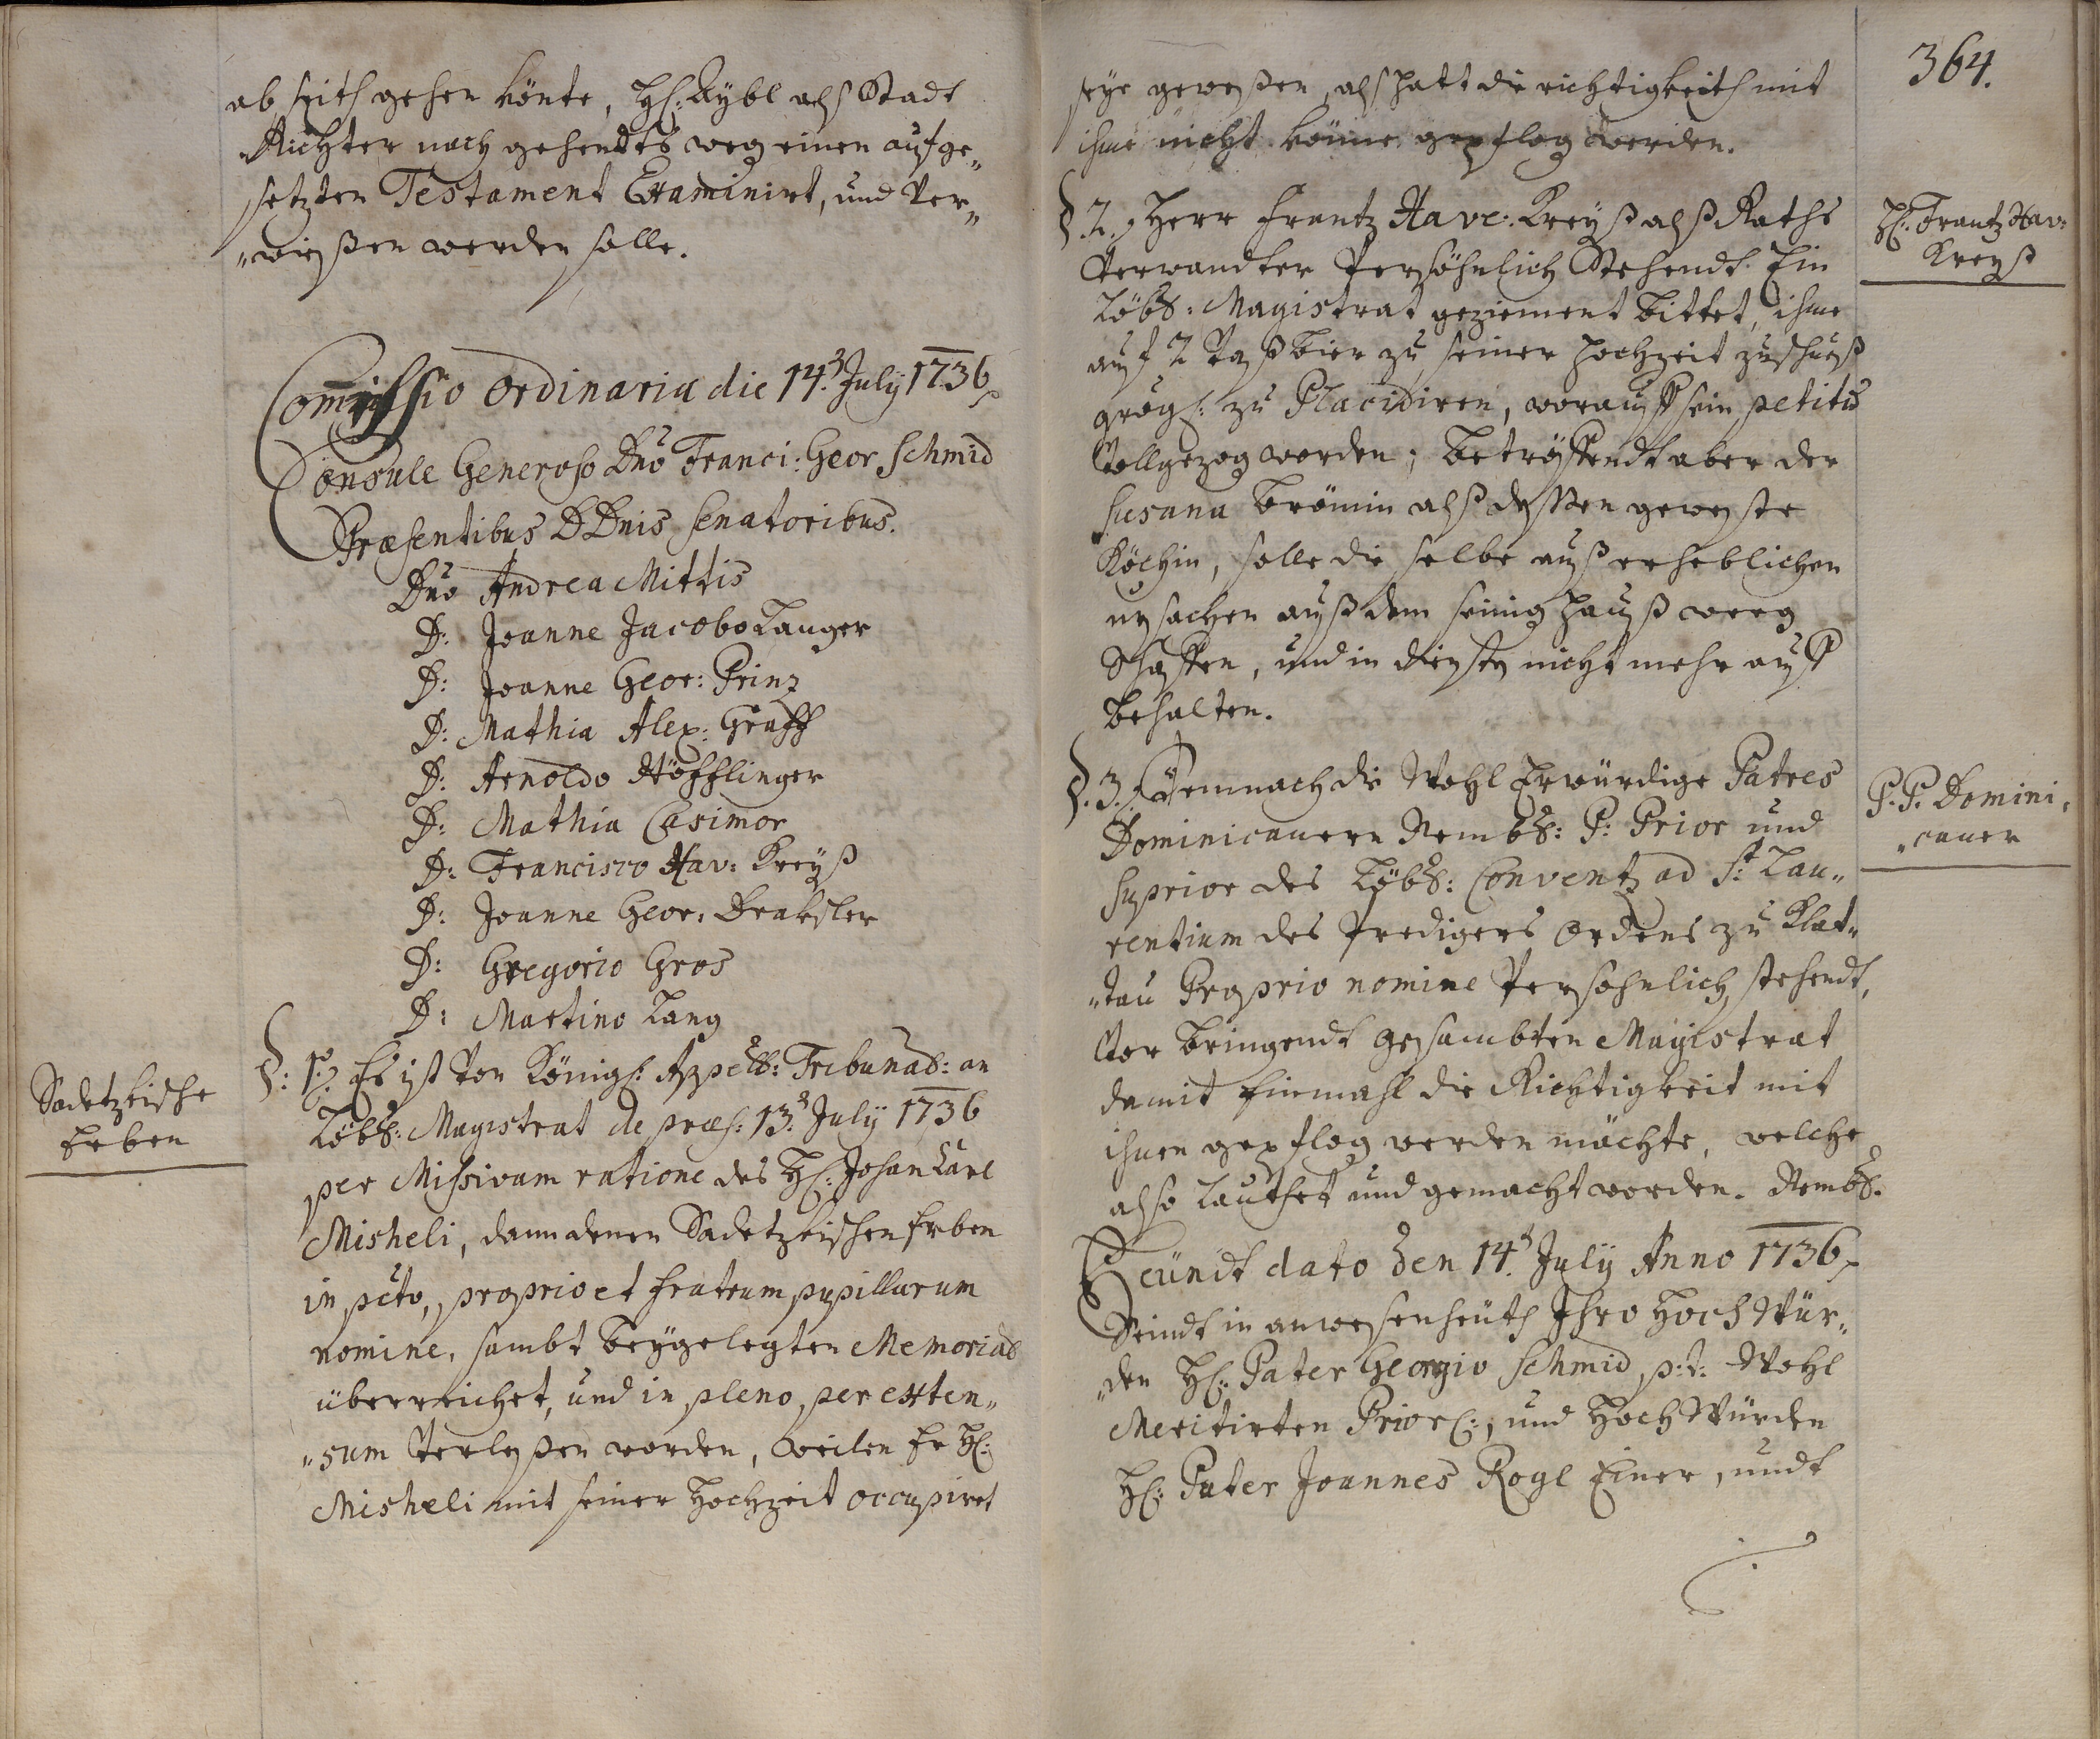 ab seith gehen könte, H: Rybl alß Stadt
Richter nach gehendts weg einen aufge„
setzten Testament Examinirt, und ver„
„wiesen werden solle.
Comissio Ordinaria die 14. July 1736
Consule Generoso Dno Franci: Geor Schmid
Præsentibus DDnis Senatoribus.
Dno Andrea Mittis
D: Joanne Jacobo Langer
D: Joanne Geor: Prinz
D: Mathia Alex: Graff
D: Arnoldo Höfflinger
D: Mathia Casimor
D: Francisco Xav: Kreyß
D: Joanne Geor: Draksler
D: Gregorio Gros
D: Martino Lang
Sadetzkische
Erben
§: 1. Es ist von Königl: Appell: Tribunal: an
Löbl: Magistrat de præs: 13. July 1736
per Missivam ratione des H: Johan Carl
Misheli, dann denen Sadetzkischen Erben
in pcto, proprio et fratrum pupillarum
nomine, sambt beygelegten Memorial
überreichet, und in pleno, per exten„
„sum verlesen worden, weilen Er H:
Misheli mit seiner Hochzeit occupiret
364.
seye gewesen, alß hatt die richtigkeith mit
ihme nicht könne gepflog werden.
§. 2. Herr Frantz Xave: Kreyß alß Raths
Verwandter Persöhnlich Stehendt Ein
Löbl: Magistrat geziement bittet, ihme
auf 2 Faß bier zu seiner Hochzeit
zu Placidiren, worauff sein petitu
vollgezog worden; betröffendt aber der
Susana Brömin alß dessen geweste
Köchin, solle die selbe auß erheblichen
ursachen auß dem seinig Hauß weeg
Schaffen, und in diensten nicht mehr auff
behalten.
H: Frantz Xav:
Kreyß
§. 3. Demnach die Wohl Erwürdige Patres
Dominicanern Nembl: P: Prior und
Suprior des Löbl: Conventz ad S: Lau„
rentium des Predigers Ordens zu Klat„
„tau Proprio nomine Persohnlich stehendt,
Vor bringendt gesambten Magistrat
damit Einmahl die Richtigkeit mit
ihnen gepflog werden möchte, welche
also lauthet und gemacht worden. Nembl.
P: P: Domini„
„caner
Heündt dato den 14. July Anno 1736
Seindt in anwesenheüth Ihro Hoch Wür„
„den H: Pater Georgio Schmid p:t: Wohl
Meritirten Prior:, und Hoch Würden
H: Pater Joannes Rogl Einer, undt